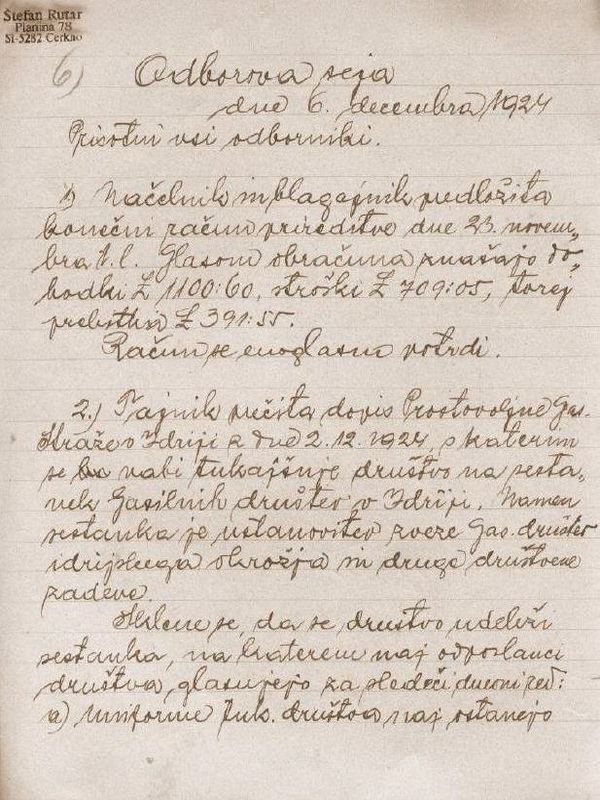 Štefan Rutar
Planina 78
SI-5282 Cerkno
6)
Odborova seja
dne 6. decembra 1924
Prisotni vsi odborniki.
1) Načelnik in blagajnik predložita
konečni račun prireditve dne 23. novem„
bra t. l. Glasom obračuna znašajo do„
hodki £ 1100:60, stroški £ 709:05, torej
prebitka £ 391:55.
Račun se enoglasno potrdi.
2.) Tajnik prečita dopis Prostovoljne Gas.
Straže v Idriji z dne 2.12.1924, s katerim
se vabi tukajšnje društvo na sesta„
nek Gasilnih društev v Idriji. Namen
sestanka je ustanovitev zveze Gas. društev
idrijskega okrožja in druge društvene
zadeve.
Sklene se, da se društvo udeleži
sestanka, na katerem naj odposlanci
društva glasujejo za sledeči dnevni red:
a) Uniforme tuk. društva naj ostanejo